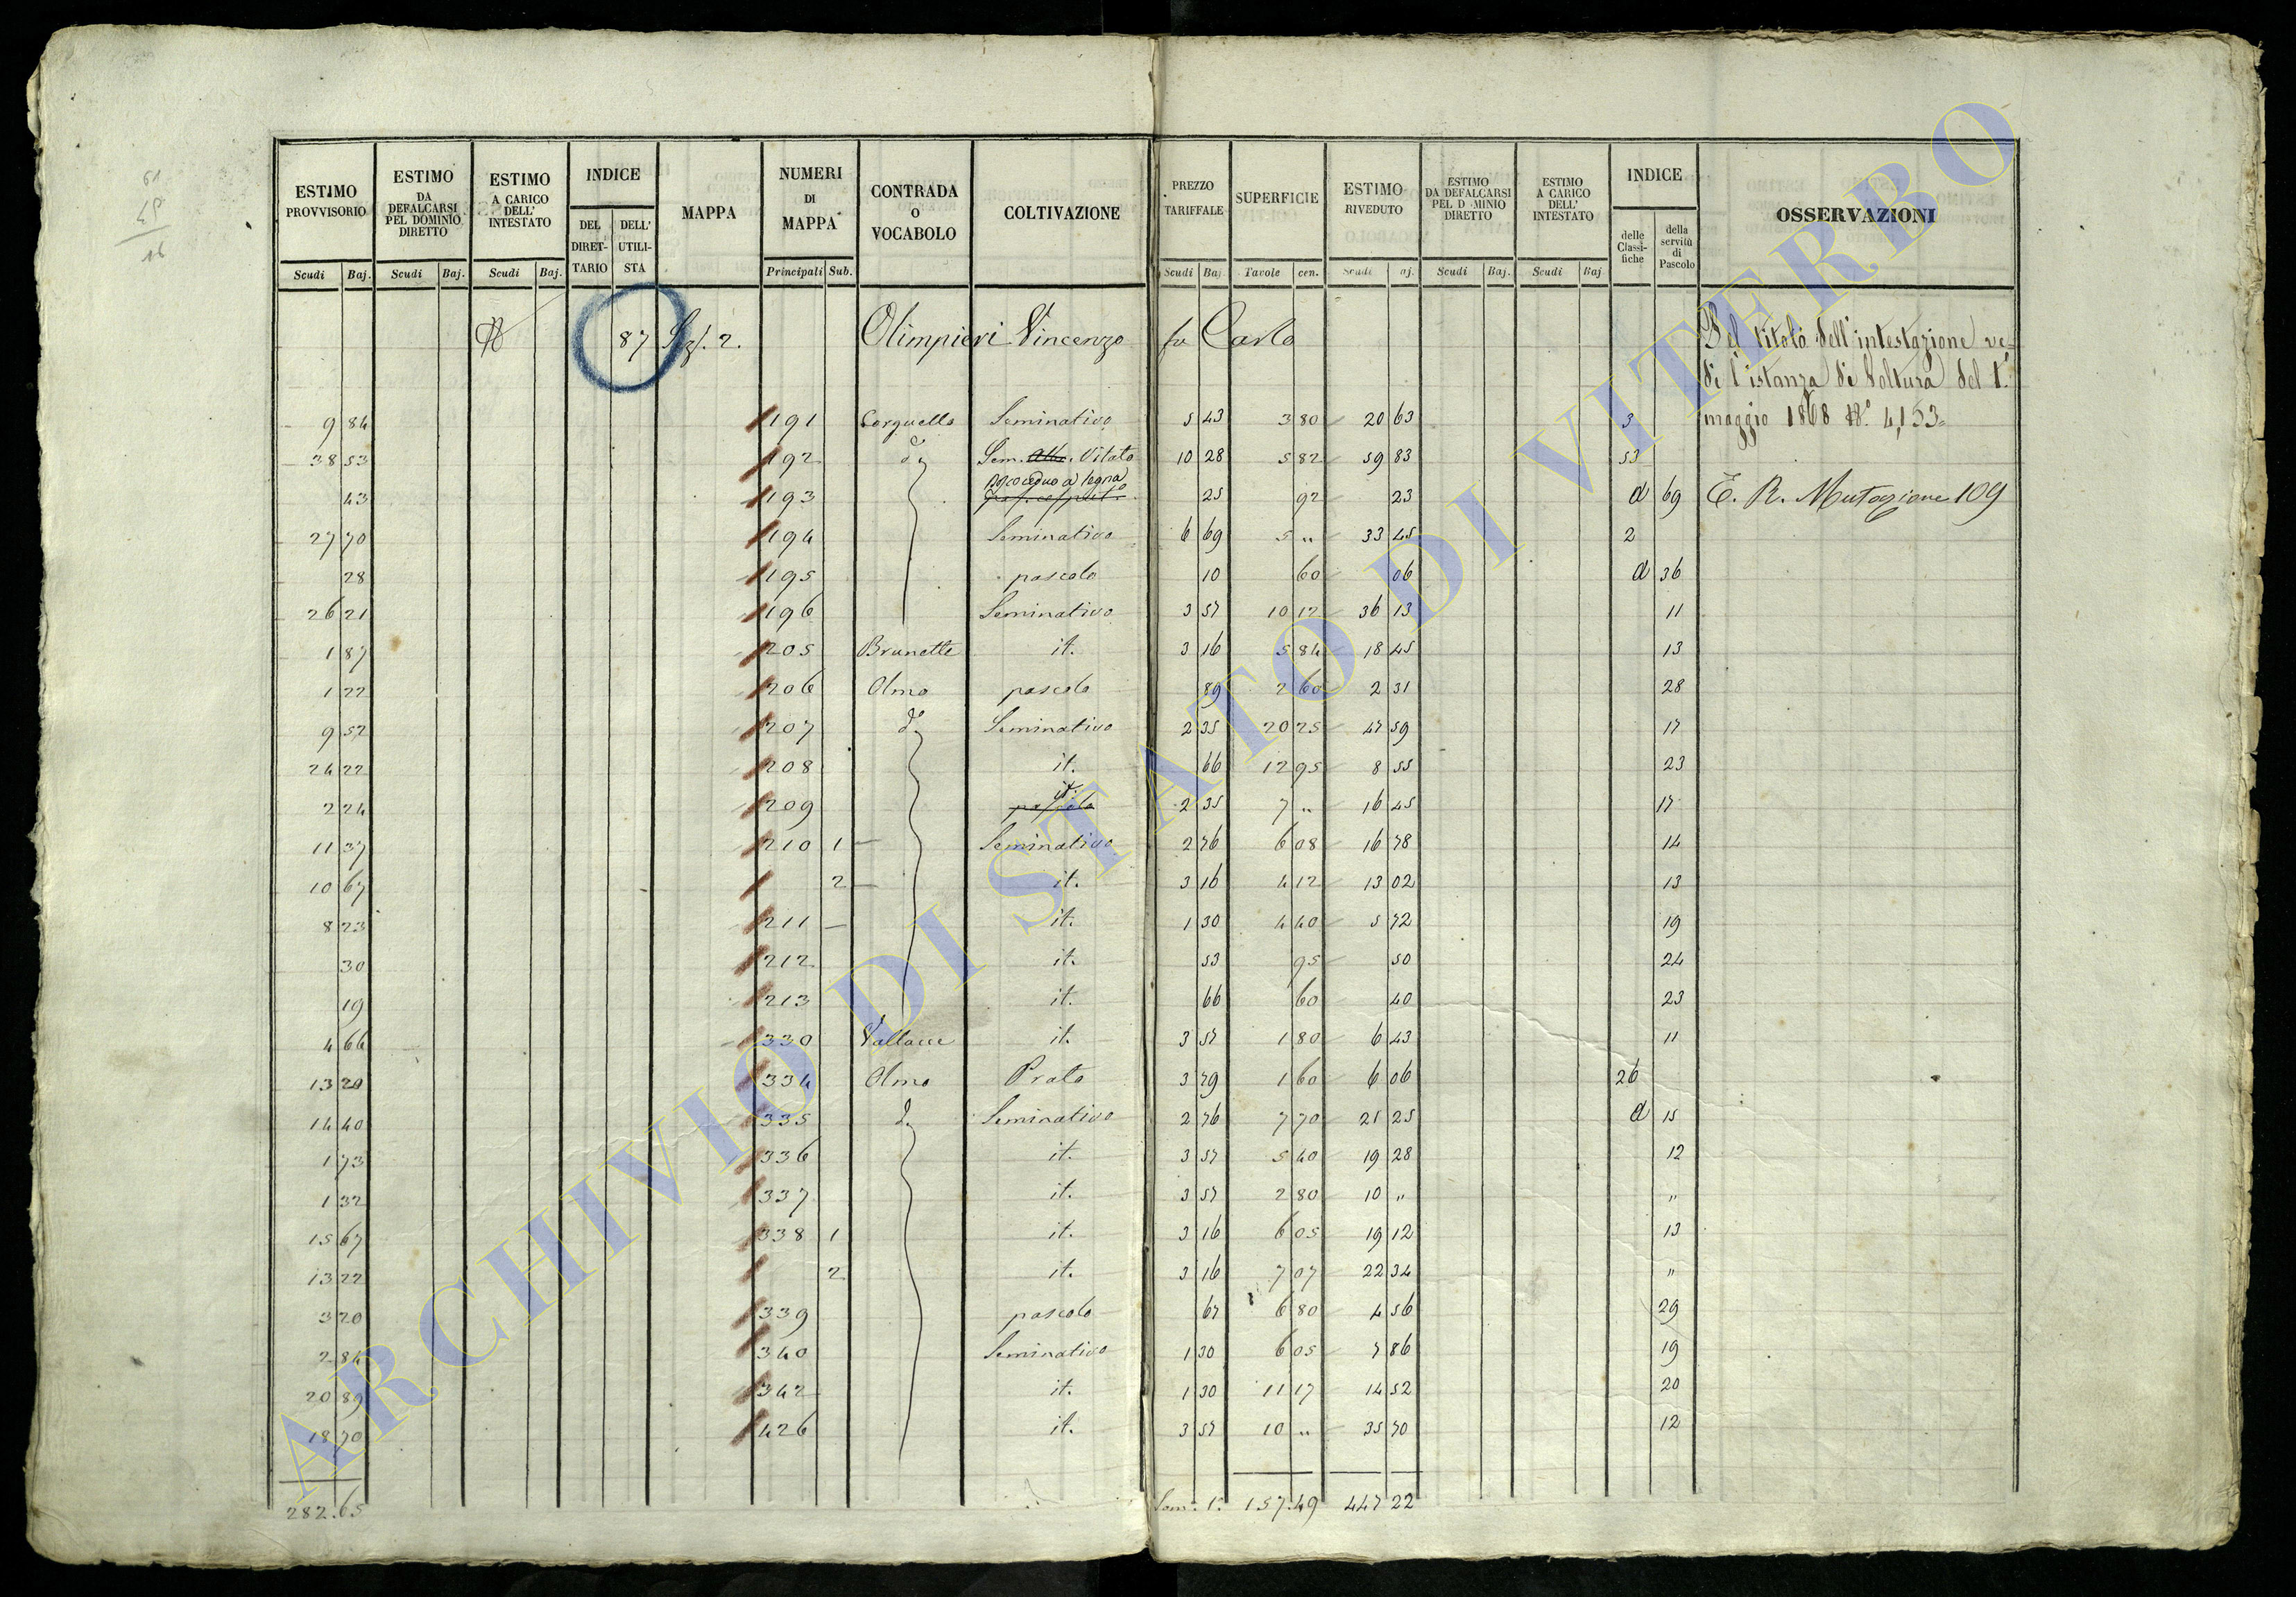 61
48
16
ESTIMO PROVVISORIO | ESTIMO DA DEFALCARSI PEL DOMINIO DIRETTO | ESTIMO A CARICO DELL' INTESTATO | INDICE | MAPPA | NUMERI DI MAPPA | CONTRADA O VOCABOLO | COLTIVAZIONE | PREZZO TARIFFALE | SUPERFICIE | ESTIMO RIVEDUTO | ESTIMO DA DEFALCARSI PEL D MINIO DIRETTO | ESTIMO A CARICO DELL' INTESTATO | INDICE | OSSERVAZIONI
DEL DIRETTARIO | DELL' UTILISTA | delle Classifiche | della servitù di Pascolo
Scudi | Baj. | Scudi | Baj. | Scudi | Baj. | Principali | Sub. | Scudi | Baj | Tavole | cen. | Scudi | aj. | Scudi | Baj. | Scudi | Baj
87 | Sez. 2. | Olimpieri Vincenzo fu Carlo | Del titolo dell'intestazione ve=
di l'istanza di Voltura del 1.
9 84 | 191 | Corquello | Seminativo | 5 43 | 3 80 | 20 63 | 3 | maggio 1868 N.º 4,153=
38 53 | 192 | do | Sem. Vitato | 10 28 | 5 82 | 59 83 | 53
43 | 193 | bosco ceduo a legna | 25 | 92 | 23 | d 69 | E. R. Mutazione 109
27 70 | 194 | Seminativo | 6 69 | 5 " | 33 45 | 2
28 | 195 | pascolo | 10 | 60 | 06 | d 36
26 21 | 196 | Seminativo | 3 57 | 10 12 | 36 13 | 11
1 87 | 205 | Brunette | it. | 3 16 | 5 84 | 18 45 | 13
1 22 | 206 | Olmo | pascolo | 89 | 2 60 | 2 31 | 28
9 52 | 207 | do | Seminativo | 2 35 | 20 25 | 47 59 | 17
24 22 | 208 | it. | 66 | 12 95 | 8 55 | 23
2 24 | 209 | it. pascolo | 2 35 | 7 " | 16 45 | 17
11 37 | 210 | 1 | Seminativo | 2 76 | 6 08 | 16 78 | 14
10 67 | 2 | it. | 3 16 | 4 12 | 13 02 | 13
8 23 | 211 | it. | 1 30 | 4 40 | 5 72 | 19
30 | 212 | it. | 53 | 95 | 50 | 24
19 | 213 | it. | 66 | 60 | 40 | 23
4 66 | 330 | it. | 3 57 | 1 80 | 6 43 | 11
13 20 | 334 | Olmo | Prato | 3 79 | 1 60 | 6 06 | 26
14 40 | 335 | d. | Seminativo | 2 76 | 7 70 | 21 25 | d 15
1 73 | 336 | it. | 3 57 | 5 40 | 19 28 | 12
1 32 | 337 | it. | 3 57 | 2 80 | 10 " | "
15 67 | 338 | 1 | it. | 3 16 | 6 05 | 19 12 | 13
13 22 | 2 | it. | 3 16 | 7 07 | 22 34 | "
3 20 | 339 | pascolo | 67 | 6 80 | 4 56 | 29
2 84 | 340 | Seminativo | 1 30 | 6 05 | 7 86 | 19
20 89 | 342 | it. | 1 30 | 11 17 | 14 52 | 20
18 70 | 426 | it. | 3 57 | 10 " | 35 70 | 12
282.65 | Som. 1. | 157.49 | 447 22
ARCHIVIO DI STATO DI VITERBO